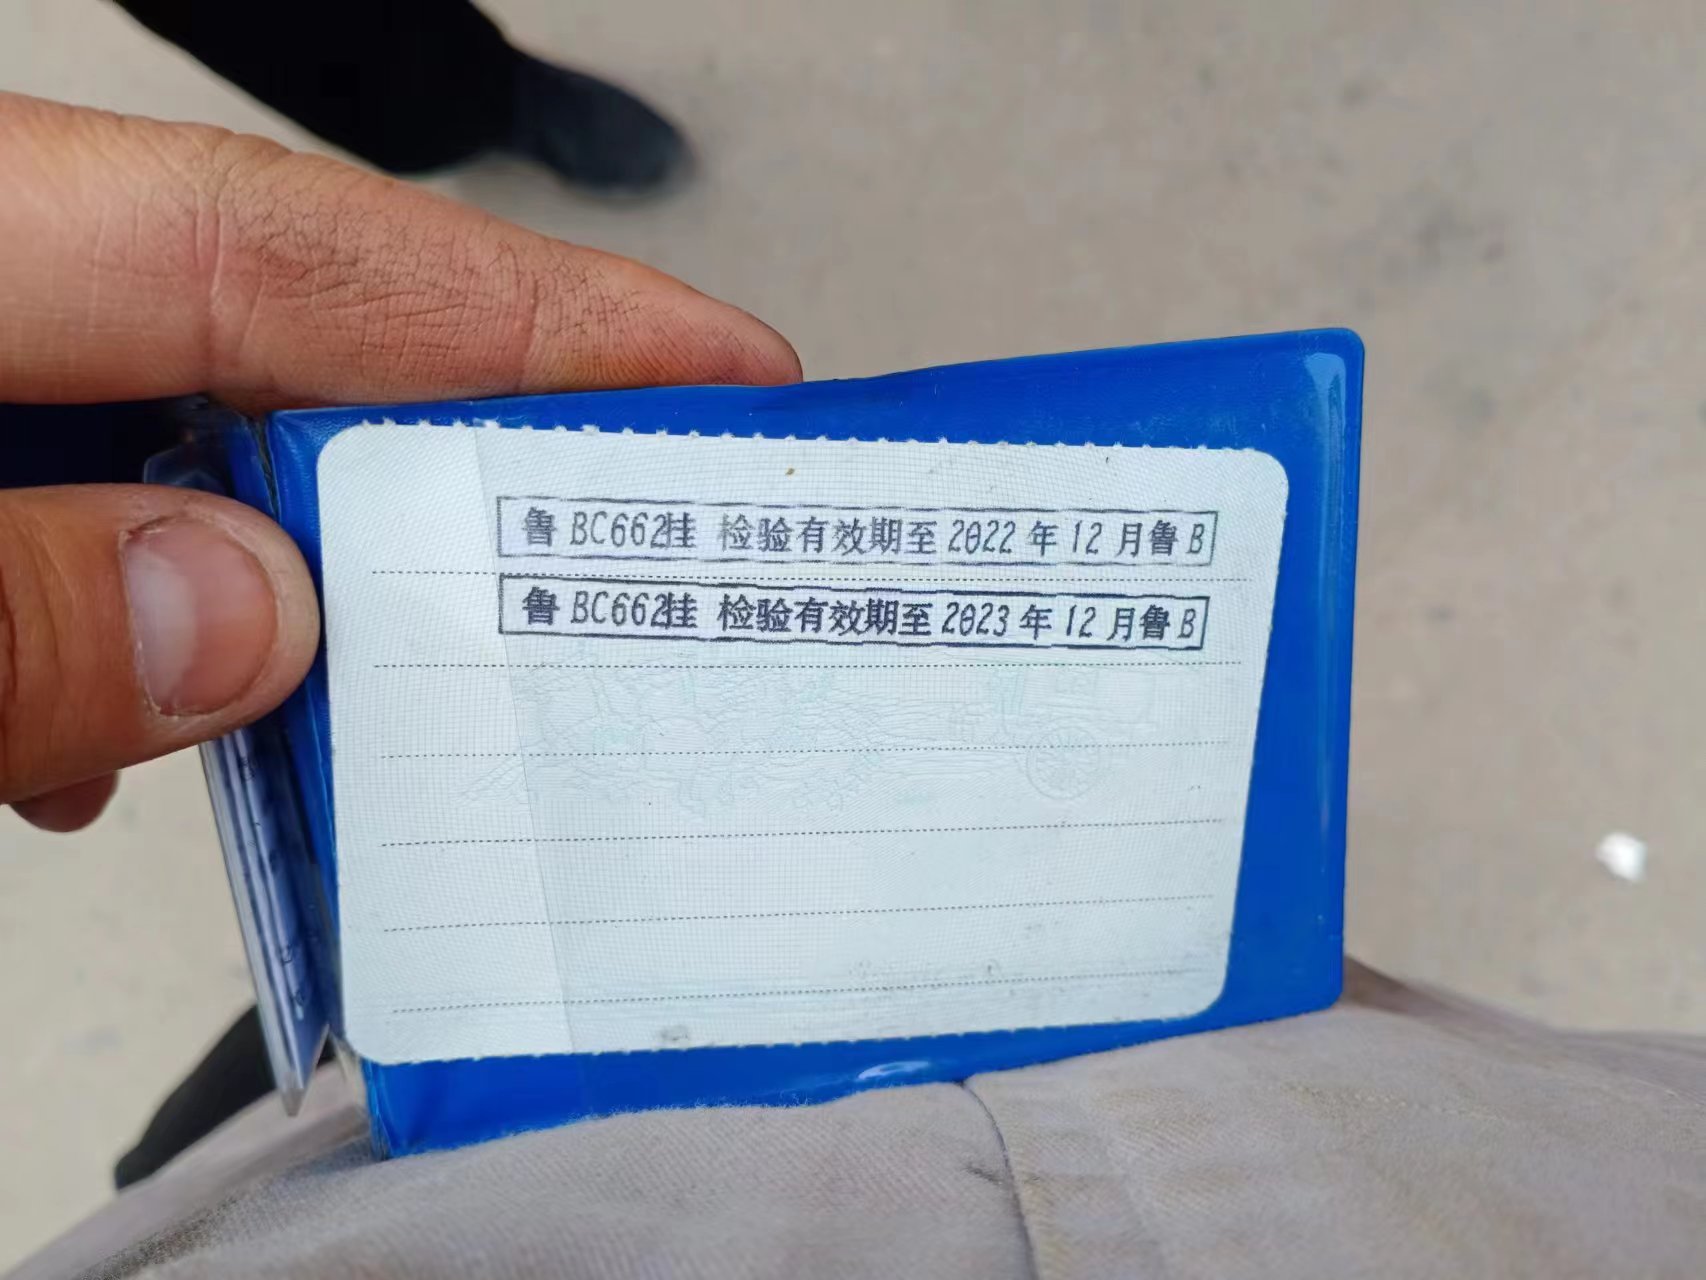 鲁BC662挂 检验有效期至2022年12月鲁B
鲁BC662挂 检验有效期至2023年12月鲁B